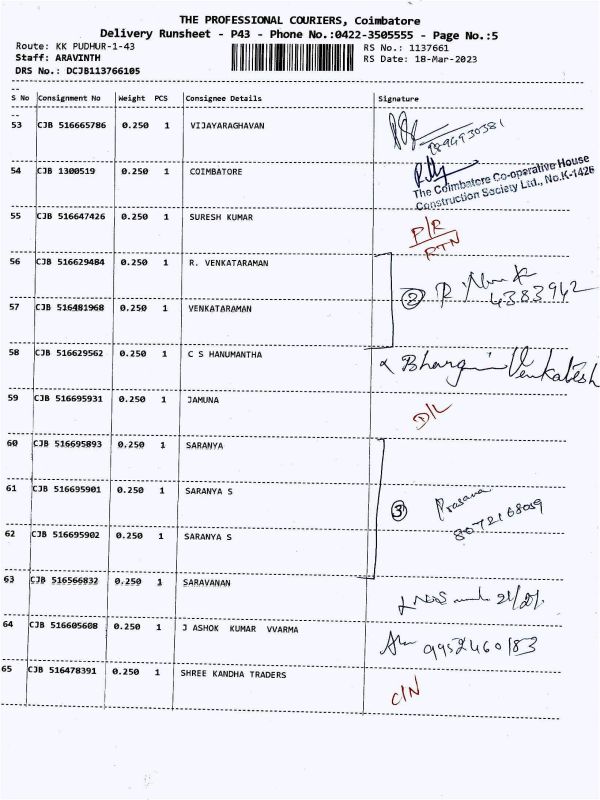 THE PROFESSIONAL COURIERS, Coimbatore
Delivery Runsheet - P43 - Phone No.:0422-3505555 - Page No.:5
Route: KK PUDHUR-1-43 RS No.: 1137661
Staff: ARAVINTH RS Date: 18-Mar-2023
DRS No.: DCJB113766105
S No Consignment No Weight PCS Consignee Details Signature
53 CJB 516665786 0.250 1 VIJAYARAGHAVAN
54 CJB 1300519 0.250 1 COIMBATORE
The Coimbatore Co-operative House
Construction Society Ltd., No.K-1426
55 CJB 516647426 0.250 1 SURESH KUMAR
P/R
RTN
56 CJB 516629484 0.250 1 R. VENKATARAMAN
2 4383942
57 CJB 516481968 0.250 1 VENKATARAMAN
58 CJB 516629562 0.250 1 C S HANUMANTHA Venkatesh
59 CJB 516695931 0.250 1 JAMUNA D/L
60 CJB 516695893 0.250 1 SARANYA
61 CJB 516695901 0.250 1 SARANYA S
3 Prasana
62 CJB 516695902 0.250 1 SARANYA S
63 CJB 516566832 0.250 1 SARAVANAN
64 CJB 516605608 0.250 1 J ASHOK KUMAR VVARMA 9952460183
65 CJB 516478391 0.250 1 SHREE KANDHA TRADERS C/N